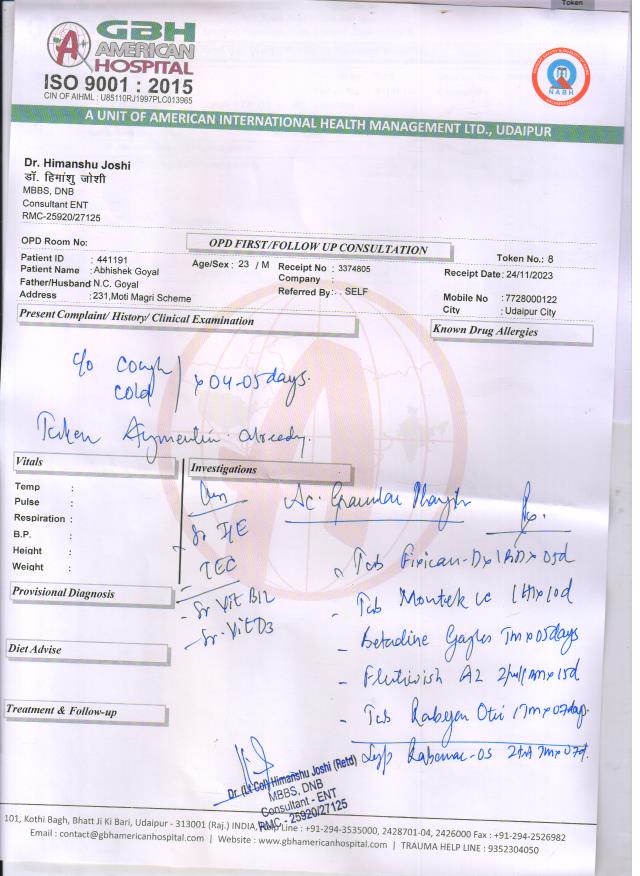 Token
GBH
AMERICAN
HOSPITAL
ISO 9001 : 2015
CIN OF AIHML : U85110RJ1997PLC013965
NABH
A UNIT OF AMERICAN INTERNATIONAL HEALTH MANAGEMENT LTD., UDAIPUR
Dr. Himanshu Joshi
डॉ. हिमांशु जोशी
MBBS, DNB
Consultant ENT
RMC-25920/27125
OPD Room No:
OPD FIRST/FOLLOW UP CONSULTATION
Token No.: 8
Patient ID : 441191
Age/Sex : 23 / M
Receipt No : 3374805
Receipt Date: 24/11/2023
Patient Name : Abhishek Goyal
Company :
Father/Husband N.C. Goyal
Referred By: . SELF
Mobile No : 7728000122
Address : 231,Moti Magri Scheme
City : Udaipur City
Present Complaint/ History/ Clinical Examination
Known Drug Allergies
c/o Cough
Cold
x 04-05 days.
Taken already.
Vitals
Investigations
Temp :
Pulse :
Respiration :
B.P. :
Height :
Weight :
Ac. Granular
Sr IgE
- Sr Vit B12
- Sr. Vit D3
Tab x 05d
- Tab Montek LC x 10d
- Betadine x 05days
- A2 x 15d
- Tab x 07days
Provisional Diagnosis
Diet Advise
Treatment & Follow-up
Dr. (Lt Col) Himanshu Joshi (Retd)
MBBS, DNB
Consultant - ENT
RMC - 25920/27125
101, Kothi Bagh, Bhatt Ji Ki Bari, Udaipur - 313001 (Raj.) INDIA, Line : +91-294-3535000, 2428701-04, 2426000 Fax : +91-294-2526982
Email : contact@gbhamericanhospital.com | Website : www.gbhamericanhospital.com | TRAUMA HELP LINE : 9352304050